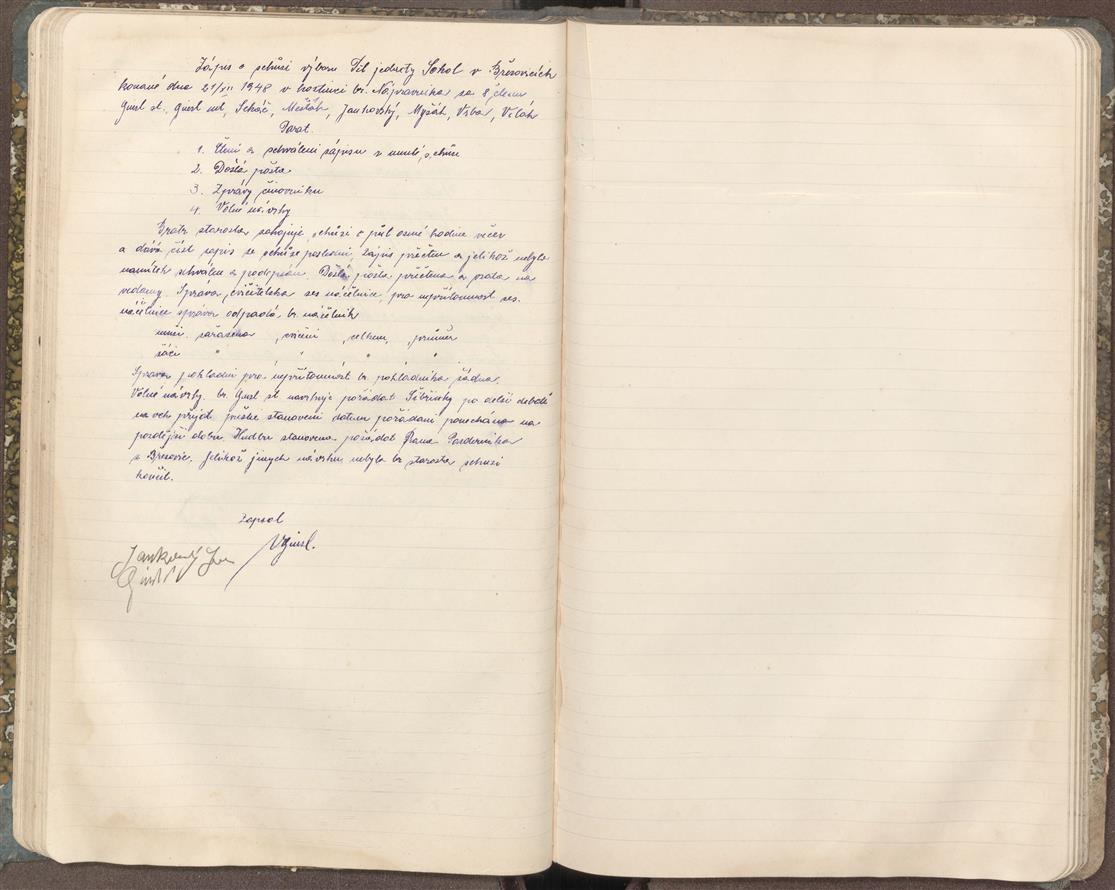 Zápis o schůzi výboru Těl jednoty Sokol v Březovicích
konané dne 21/VII 1948 v hostinci br. Nápravníka za 8 členů
Ginzl st., Ginzl ml, Sekáč, Mešták, Jankovský, Myšák, Vrba, Vrlák
Porad.
1. Čtení a schválení zápisu z minulé schůze
2. Došlá pošta
3. Zprávy činovníku
4. Volné návrhy
Bratr starosta zahajuje schůzi o půl osmé hodine večer
a dává číst zapis ze schůze poslední, Zapis přečten a jelikož nebylo
namitek schválen a podepsán. Došlá pošta přečtena a vzata na
vedomy. Zpráva cvičitelska ses náčelnice, pro nepřítomnost ses.
náčelnice zpráva odpadá, br. náčelník
muži zařazeno, cvičení, celkem, průměr
žáci " " " "
Zprava pokladní pro nepřítomnost br. pokladníka žádna.
Volné návrhy. br. Ginzl st navrhuje pořádat Šibřinky po delší debatě
na vch přijat přesné stanovení datum pořádaní ponecháno na
pozdější dobu. Hudbu stanoveno požádat Pana
z Brezovic. Jelikož jinych návrhu nebylo br starosta schuzi
končil.
Zapsal
VGinzl.
Jankovský Jan
Ginzl